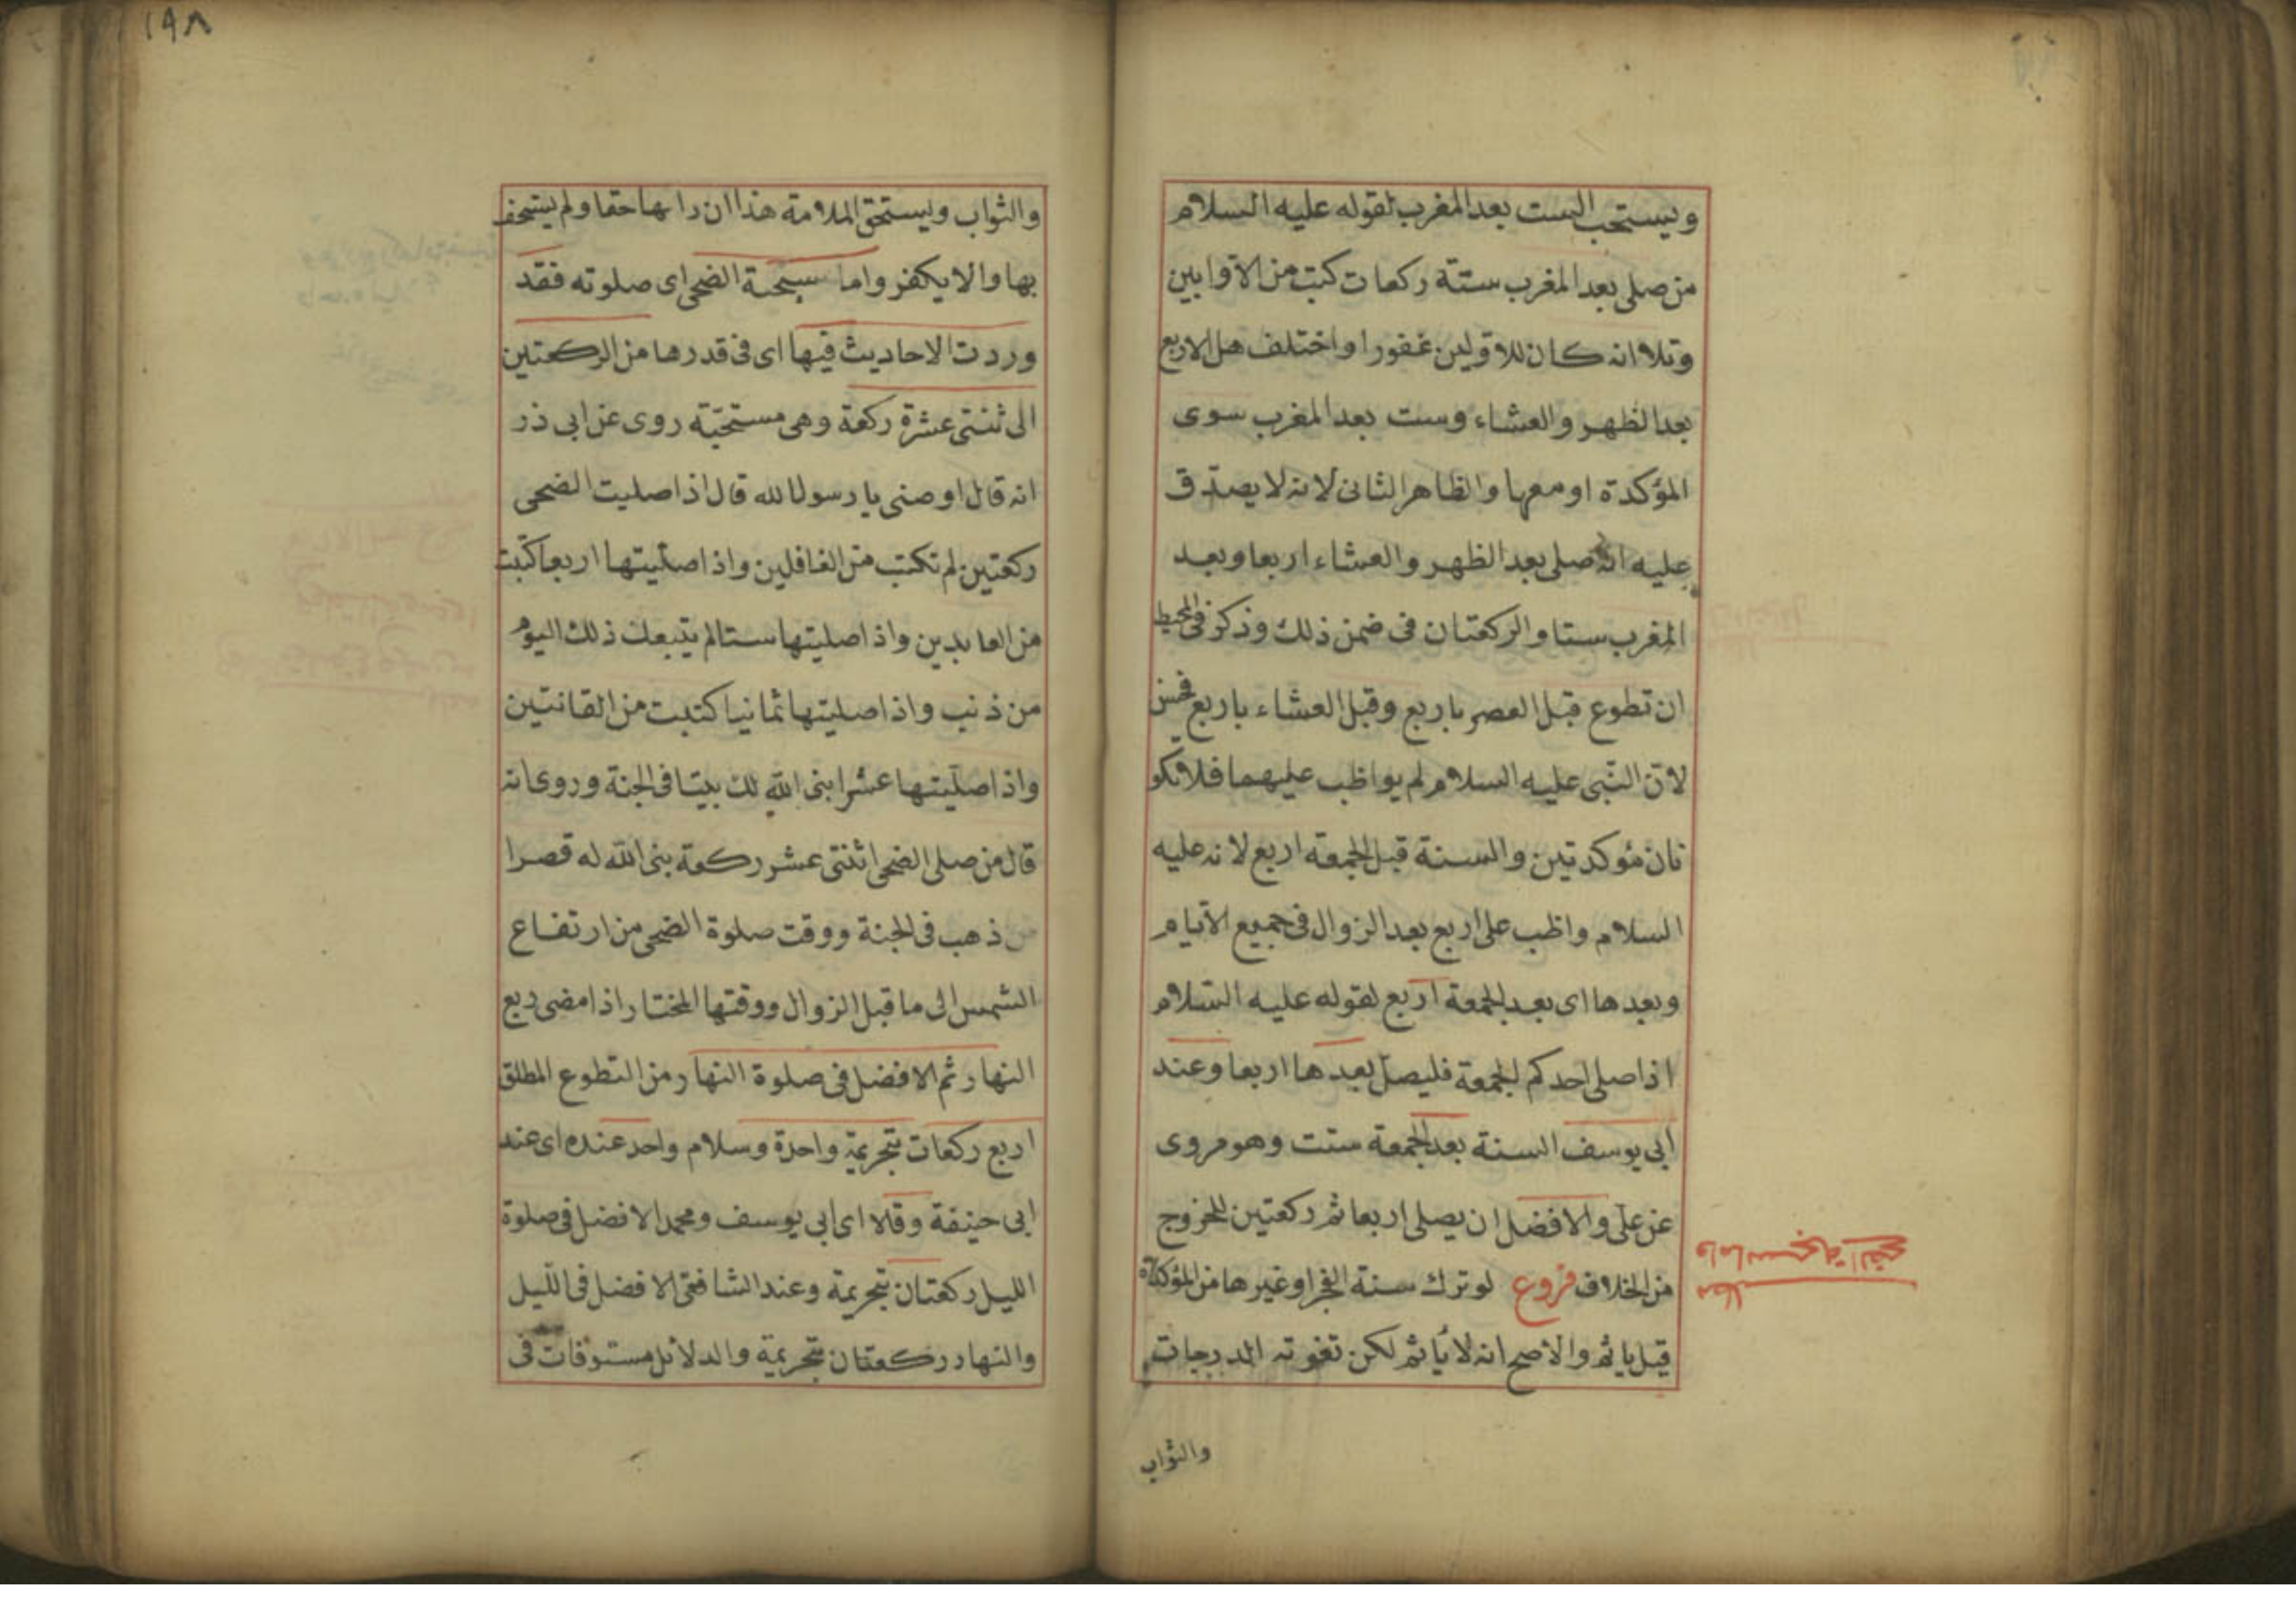 ويستحب الست بعد المغرب لقوله عليه السلام
من صلى بعد المغرب ستة ركعات كتب من الاوابين
وتلا انه كان للاوابين غفورا واختلف هل الاربع
بعد الظهر والعشاء وست بعد المغرب سوى
المؤكدة او معها والظاهر الثاني لانه لا يصدق
عليه انه صلى بعد الظهر والعشاء اربعا وبعد
المغرب ستا والركعتان في ضمن ذلك وذكر في المحيط
ان تطوع قبل العصر باربع وقبل العشاء باربع فحسن
لان النبي عليه السلام لم يواظب عليهما فلا تكو
نان مؤكدتين والسنة قبل الجمعة اربع لانه عليه
السلام واظب على اربع بعد الزوال في جميع الايام
وبعدها اي بعد الجمعة اربع لقوله عليه السلام
اذا صلى احدكم الجمعة فليصل بعدها اربعا وعند
ابي يوسف السنة بعد الجمعة ست وهو مروى
عن علي والافضل ان يصلى اربعا ثم ركعتين للخروج
من الخلاف فروع لو ترك سنة الفجر او غيرها من المؤكدة
قيل ياثم والاصح انه لا يأثم لكن تفوته الدرجات
والثواب
مطلب
واما سبحة الضحى
١٩٨
والثواب ويستحق الملامة هذا ان راها حقا ولم يستخف
بها والا يكفر واما سبحة الضحى اى صلوته فقد
وردت الاحاديث فيها اى فى قدرها من الركعتين
الى ثنتى عشرة ركعة وهى مستحبة روى عن ابى ذر
انه قال اوصنى يا رسول الله قال اذا صليت الضحى
ركعتين لم تكتب من الغافلين واذا صليتها اربعا كتبت
من العابدين واذا صليتها ستا لم يتبعك ذلك اليوم
من ذنب واذا صليتها ثمانيا كتبت من القانتين
واذا صليتها عشرا بنى الله لك بيتا فى الجنة وروى انه
قال من صلى الضحى اثنتى عشر ركعة بنى الله له قصرا
من ذهب فى الجنة ووقت صلوة الضحى من ارتفاع
الشمس الى ما قبل الزوال ووقتها المختار اذا مضى ربع
النهار ثم الافضل فى صلوة النهار من التطوع المطلق
اربع ركعات بتحريمة واحدة وسلام واحد عنده اى عند
ابى حنيفة وقالا اى ابى يوسف ومحمد الافضل فى صلوة
الليل ركعتان بتحريمة وعند الشافعى الافضل فى الليل
والنهار ركعتان بتحريمة والدلائل مستوفات فى